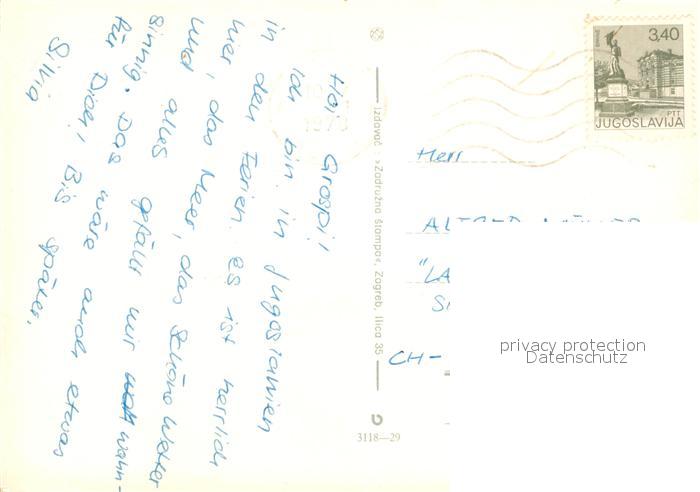 Hoi Grospi!
Ich bin in Jugoslawien
in den Ferien. Es ist herrlich
hier, das Meer, das schöne Wetter
und alles gefällt mir wahn-
sinnig. Das wäre auch etwas
für Dich! Bis später.
Silvia
Izdavač »Zadružna štampa«, Zagreb, Ilica 35
3118—29
3,40
PTT
JUGOSLAVIJA
Herr
"LA
CH-
privacy protection
Datenschutz